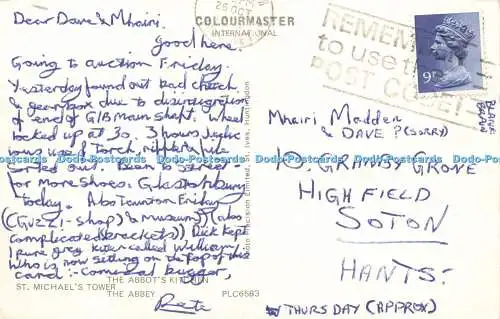 Dear Dave & Mhairi.
good here.
Going to auction Friday.
Yesterday found out bad clutch
& gearbox due to disintegration
of end of G/B Main shaft. Wheel
locked up at 30. 3 hours,
Torch,
sorted out. Been to Street
for More Shoes. Glastonbury
Today. Also Taunton Friday
(Guzzi-Shop) & Museum)) (also
complicated brackets)) Dick kept
1 pure grey kitten called William
who is now sitting on the top of this
card :- comical bugger,
Pete
COLOURMASTER
INTERNATIONAL
26 OCT
REMEMBER
to use the
POST CODE
9P
Mhairi Madden
& DAVE ? (SORRY)
10. GRANBY GROVE
HIGHFIELD
SOTON
HANTS.
THURSDAY (APPROX)
Photo Precision Limited, St. Ives, Huntingdon
THE ABBOT'S KITCHEN
ST. MICHAEL'S TOWER
THE ABBEY
PLC6563
Dodo-Postcards Dodo-Postcards Dodo-Postcards Dodo-Postcards Dodo-Postcards